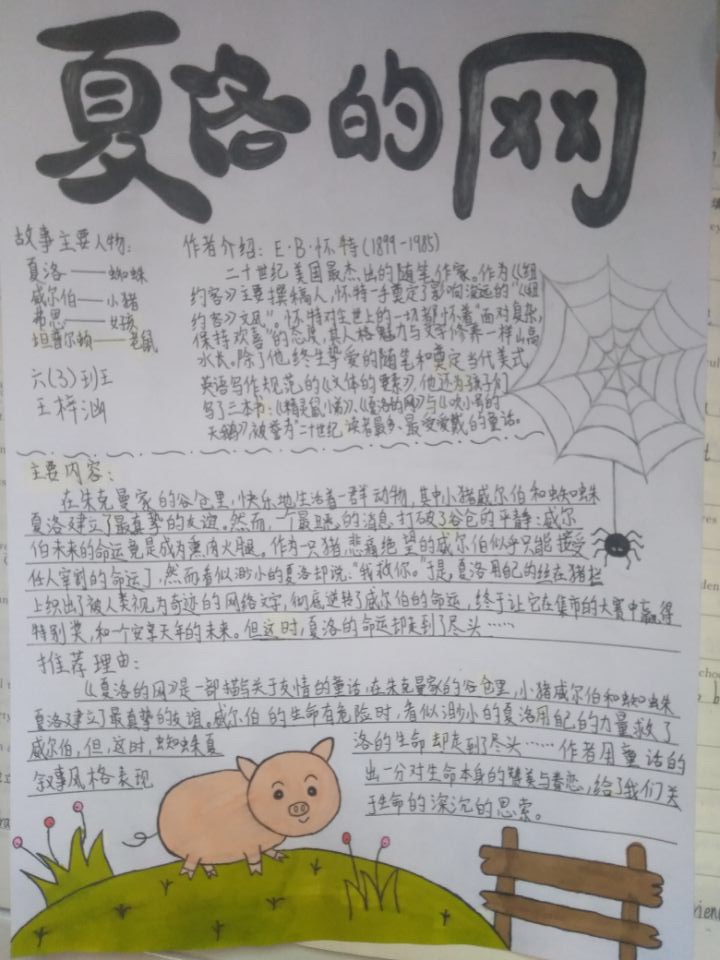 夏洛的网
故事主要人物:
夏洛——蜘蛛
威尔伯——小猪
弗恩——女孩
坦普尔顿——老鼠
六(3)班
王梓涵
作者介绍: E·B·怀特(1899-1985)
二十世纪美国最杰出的随笔作家。作为《纽
约客》主要撰稿人,怀特一手奠定了影响深远的“《纽
约客》文风”。怀特对生世上的一切都怀着“面对复杂,
保持欢喜”的态度,其人格魅力与文字修养一样山高
水长。除了他终生挚爱的随笔和奠定当代美式
英语写作规范的《文体的要素》,他还为孩子们
写了三本书:《精灵鼠小弟》、《夏洛的网》与《吹小号的
天鹅》,被誉为“二十世纪读者最多、最受爱戴的童话。
主要内容:
在朱克曼家的谷仓里,快乐地生活着一群动物,其中小猪威尔伯和蜘蛛
夏洛建立了最真挚的友谊。然而,一个最丑恶的消息打破了谷仓的平静:威尔
伯未来的命运竟是成为熏肉火腿。作为一只猪,悲痛绝望的威尔伯似乎只能接受
任人宰割的命运了,然而看似渺小的夏洛却说:“我救你。”于是,夏洛用自己的丝在猪栏
上织出了被人类视为奇迹的网络文字,彻底逆转了威尔伯的命运,终于让它在集市的大赛中赢得
特别奖,和一个安享天年的未来。但这时,夏洛的命运却走到了尽头……
推荐理由:
《夏洛的网》是一部描写关于友情的童话,在朱克曼家的谷仓里,小猪威尔伯和蜘蛛
夏洛建立了最真挚的友谊。威尔伯的生命有危险时,看似渺小的夏洛用自己的力量救了
威尔伯,但,这时,蜘蛛夏洛的生命却走到了尽头……作者用童话的
叙事风格表现出一分对生命本身的赞美与眷恋,给了我们关
于生命的深沉的思索。